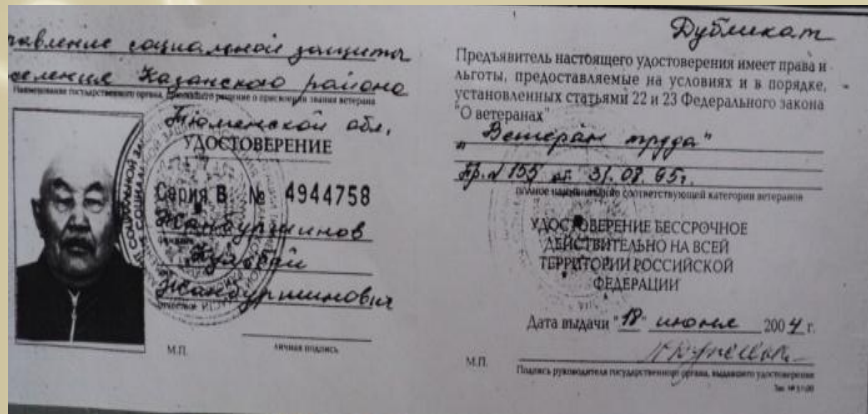 управление социальной защиты
населения Казанского района
Наименование государственного органа, принявшего решение о присвоении звания ветерана
Тюменской обл.
УДОСТОВЕРЕНИЕ
Серия В № 4944758
Жанбуршинов
фамилия
Жанбуршинович
отчество
М.П.
личная подпись
Дубликат
Предъявитель настоящего удостоверения имеет права и
льготы, предоставляемые на условиях и в порядке,
установленных статьями 22 и 23 Федерального закона
"О ветеранах"
"Ветеран труда"
Пр. № 155 от 31.08.95г.
полное наименование соответствующей категории ветеранов
УДОСТОВЕРЕНИЕ БЕССРОЧНОЕ
ДЕЙСТВИТЕЛЬНО НА ВСЕЙ
ТЕРРИТОРИИ РОССИЙСКОЙ
ФЕДЕРАЦИИ
Дата выдачи "18" июня 2004 г.
М.П.
Подпись руководителя государственного органа, выдавшего удостоверение